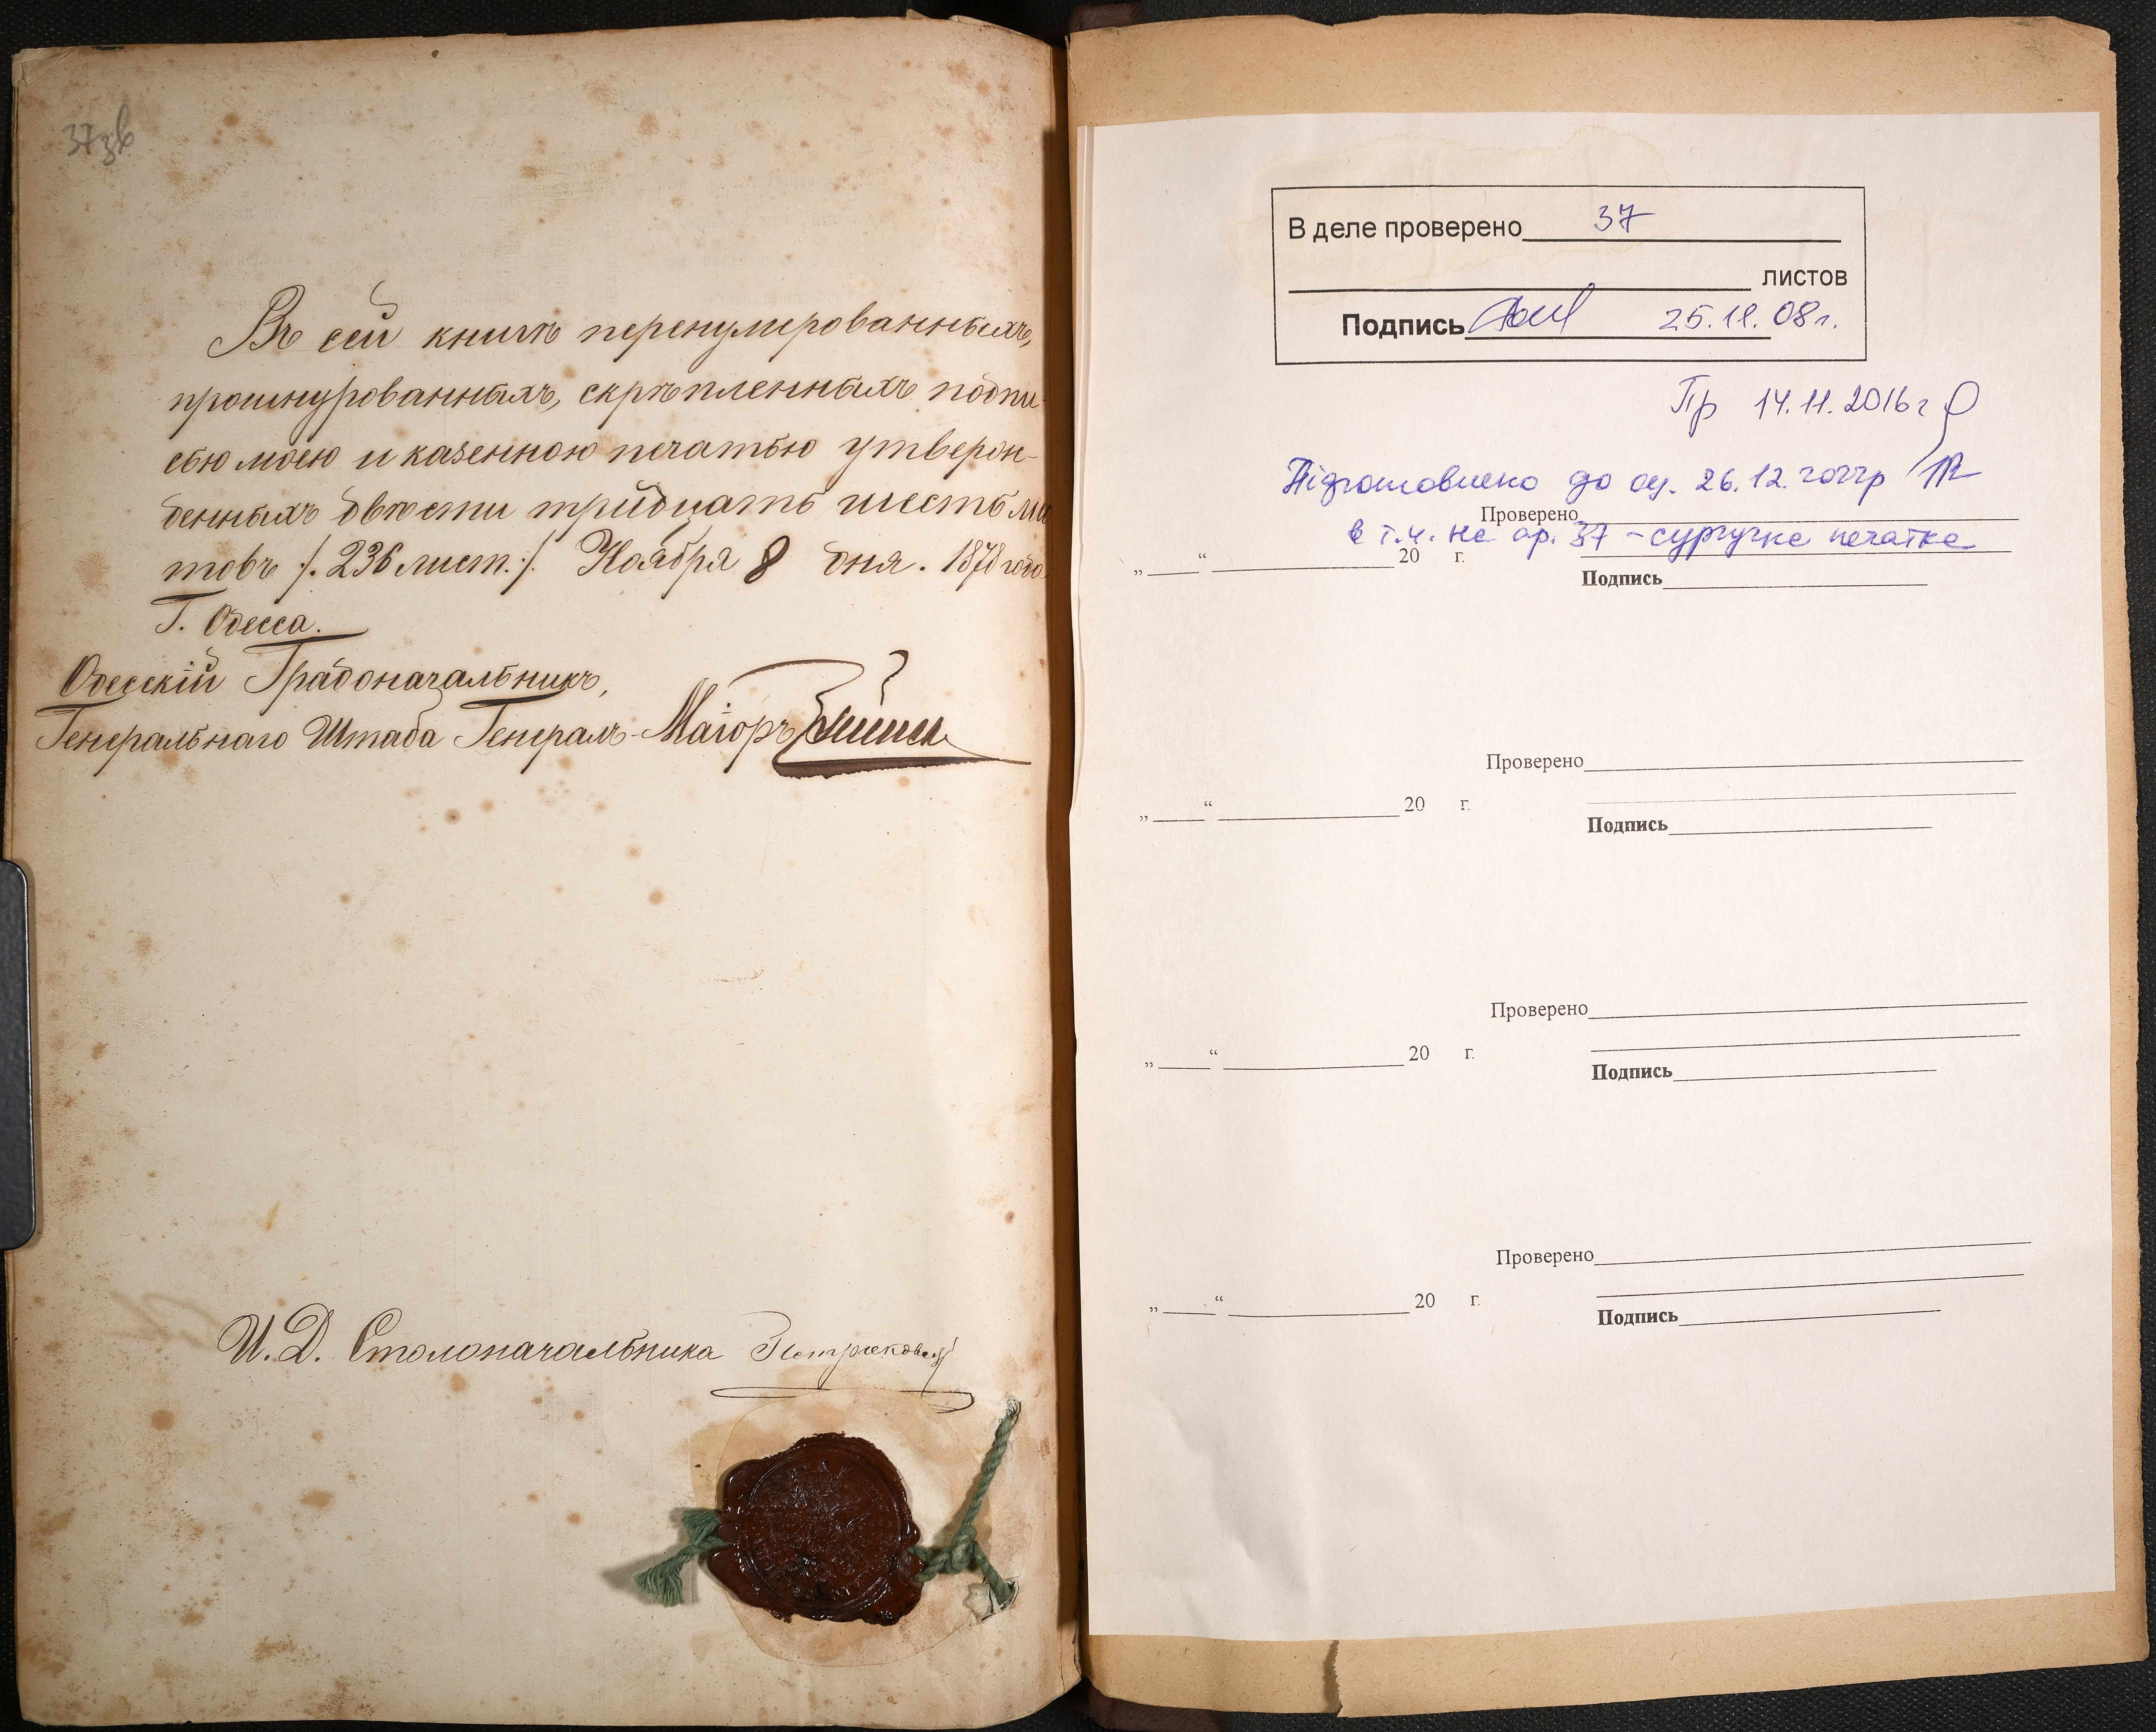 37зв
Въ сей книгѣ перенумерованныхъ,
прошнурованныхъ, скрѣпленныхъ подпи-
сью моею и казенною печатью утверж-
денныхъ двѣсти тридцать шесть лис
товъ /. 236 лист. /. Ноября 8 дня. 1878 года
Г. Одесса.
Одесскій Градоначальникъ,
Генеральнаго Штаба Генералъ-Маіоръ
И. Д. Столоначальника
В деле проверено 37
листов
Подпись 25.11.08г.
Пр 14.11.2016г
Підготовлено до оц. 26.12.2022р
Проверено
в т.ч. на ар. 37 - сургучна печатка
„ “ 20 г.
Подпись
Проверено
„ “ 20 г.
Подпись
Проверено
„ “ 20 г.
Подпись
Проверено
„ “ 20 г.
Подпись